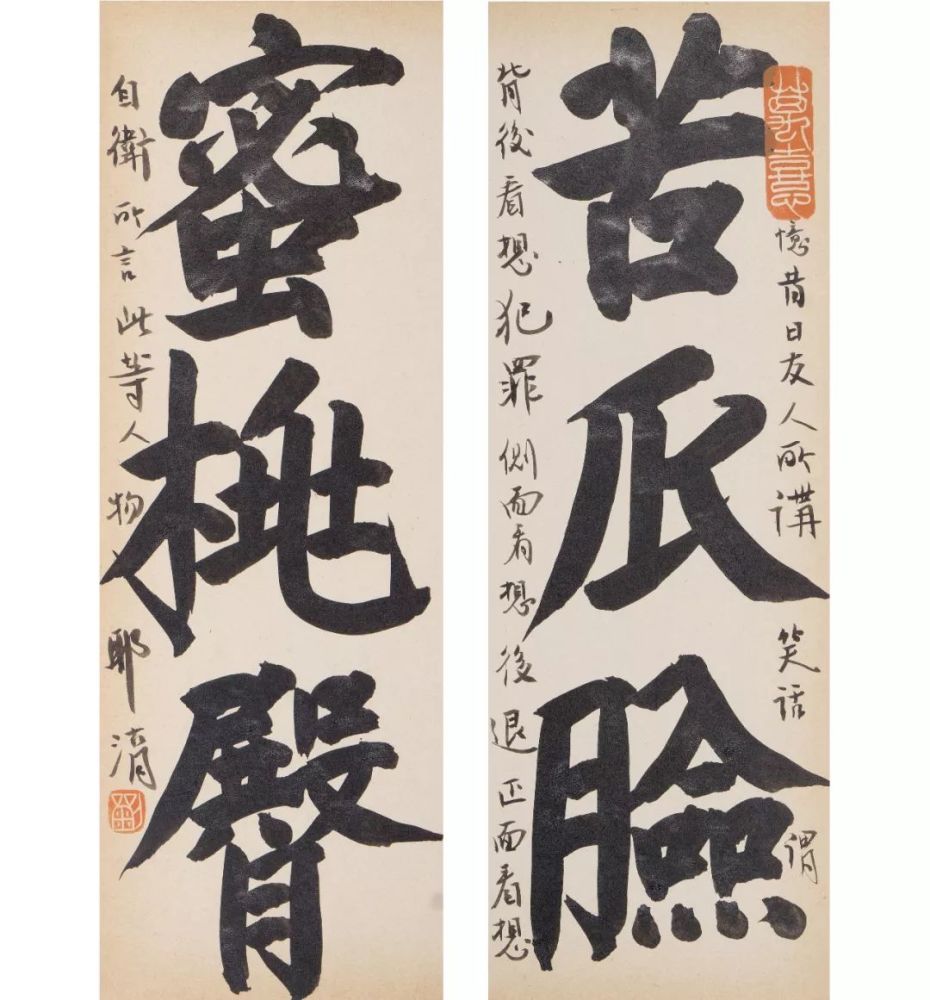 憶昔日友人所講笑話謂
苦瓜臉
背後看想犯罪側面看想後退正面看想
蜜桃臀
自衛所言此等人物耶清